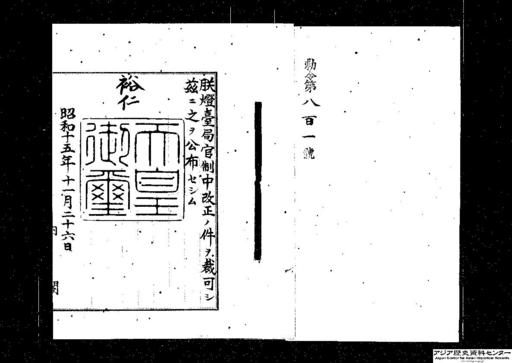 勅令第八百一號
朕燈臺局官制中改正ノ件ヲ裁可シ
茲ニ之ヲ公布セシム
裕仁
天皇
御璽
昭和十五年十一月二十六日
内閣
アジア歴史資料センター
Japan Center for Asian Historical Records